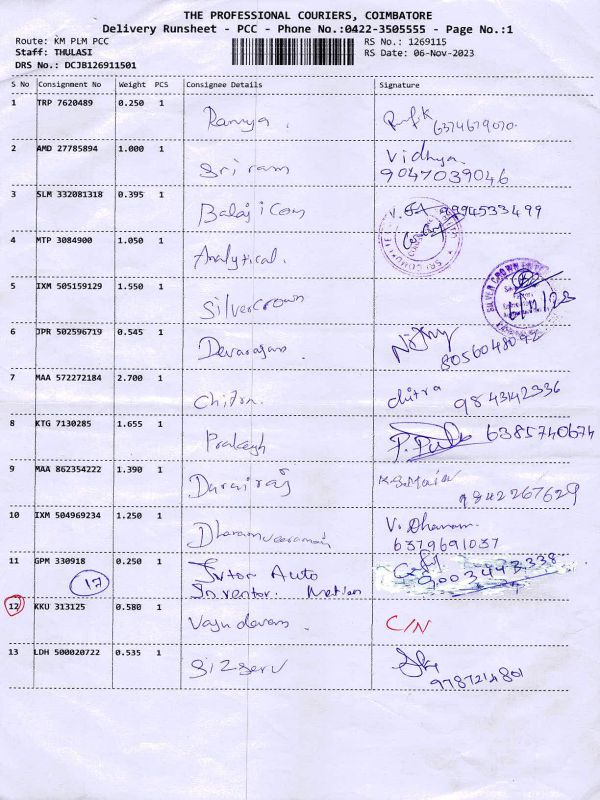 THE PROFESSIONAL COURIERS, COIMBATORE
Delivery Runsheet - PCC - Phone No.:0422-3505555 - Page No.:1
Route: KM PLM PCC RS No.: 1269115
Staff: THULASI RS Date: 06-Nov-2023
DRS No.: DCJB126911501
S No Consignment No Weight PCS Consignee Details Signature
1 TRP 7620489 0.250 1 Ramya.
2 AMD 27785894 1.000 1 Sriram Vidhya.
9047039046
3 SLM 332081318 0.395 1 Balaji Com 9994533499
4 MTP 3084900 1.050 1 Analytical.
5 IXM 505159129 1.550 1 SilverCrown
6 JPR 502596719 0.545 1 Devarajan
8056048092
7 MAA 572272184 2.700 1 Chitra. chitra 9843142336
8 KTG 7130285 1.655 1 Prakash 6385740674
9 MAA 862354222 1.390 1 Durairaj
9842267629
10 IXM 504969234 1.250 1 V. Dharam.
6379691037
11 GPM 330918 0.250 1 Auto
17 Inventor. 9003443338
12 KKU 313125 0.580 1 Vasudevan. C/N
13 LDH 500020722 0.535 1 Sizserv